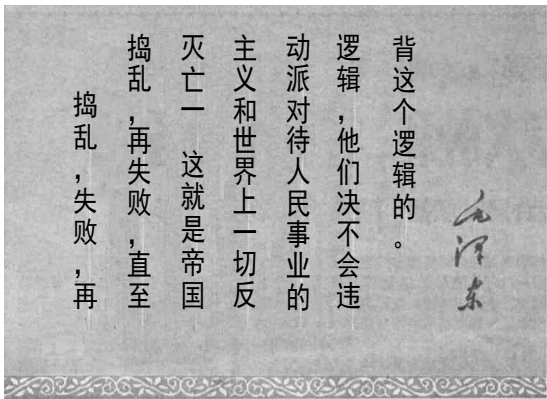 捣乱，失败，再
捣乱，再失败，直至
灭亡一 这就是帝国
主义和世界上一切反
动派对待人民事业的
逻辑，他们决不会违
背这个逻辑的。
毛泽东